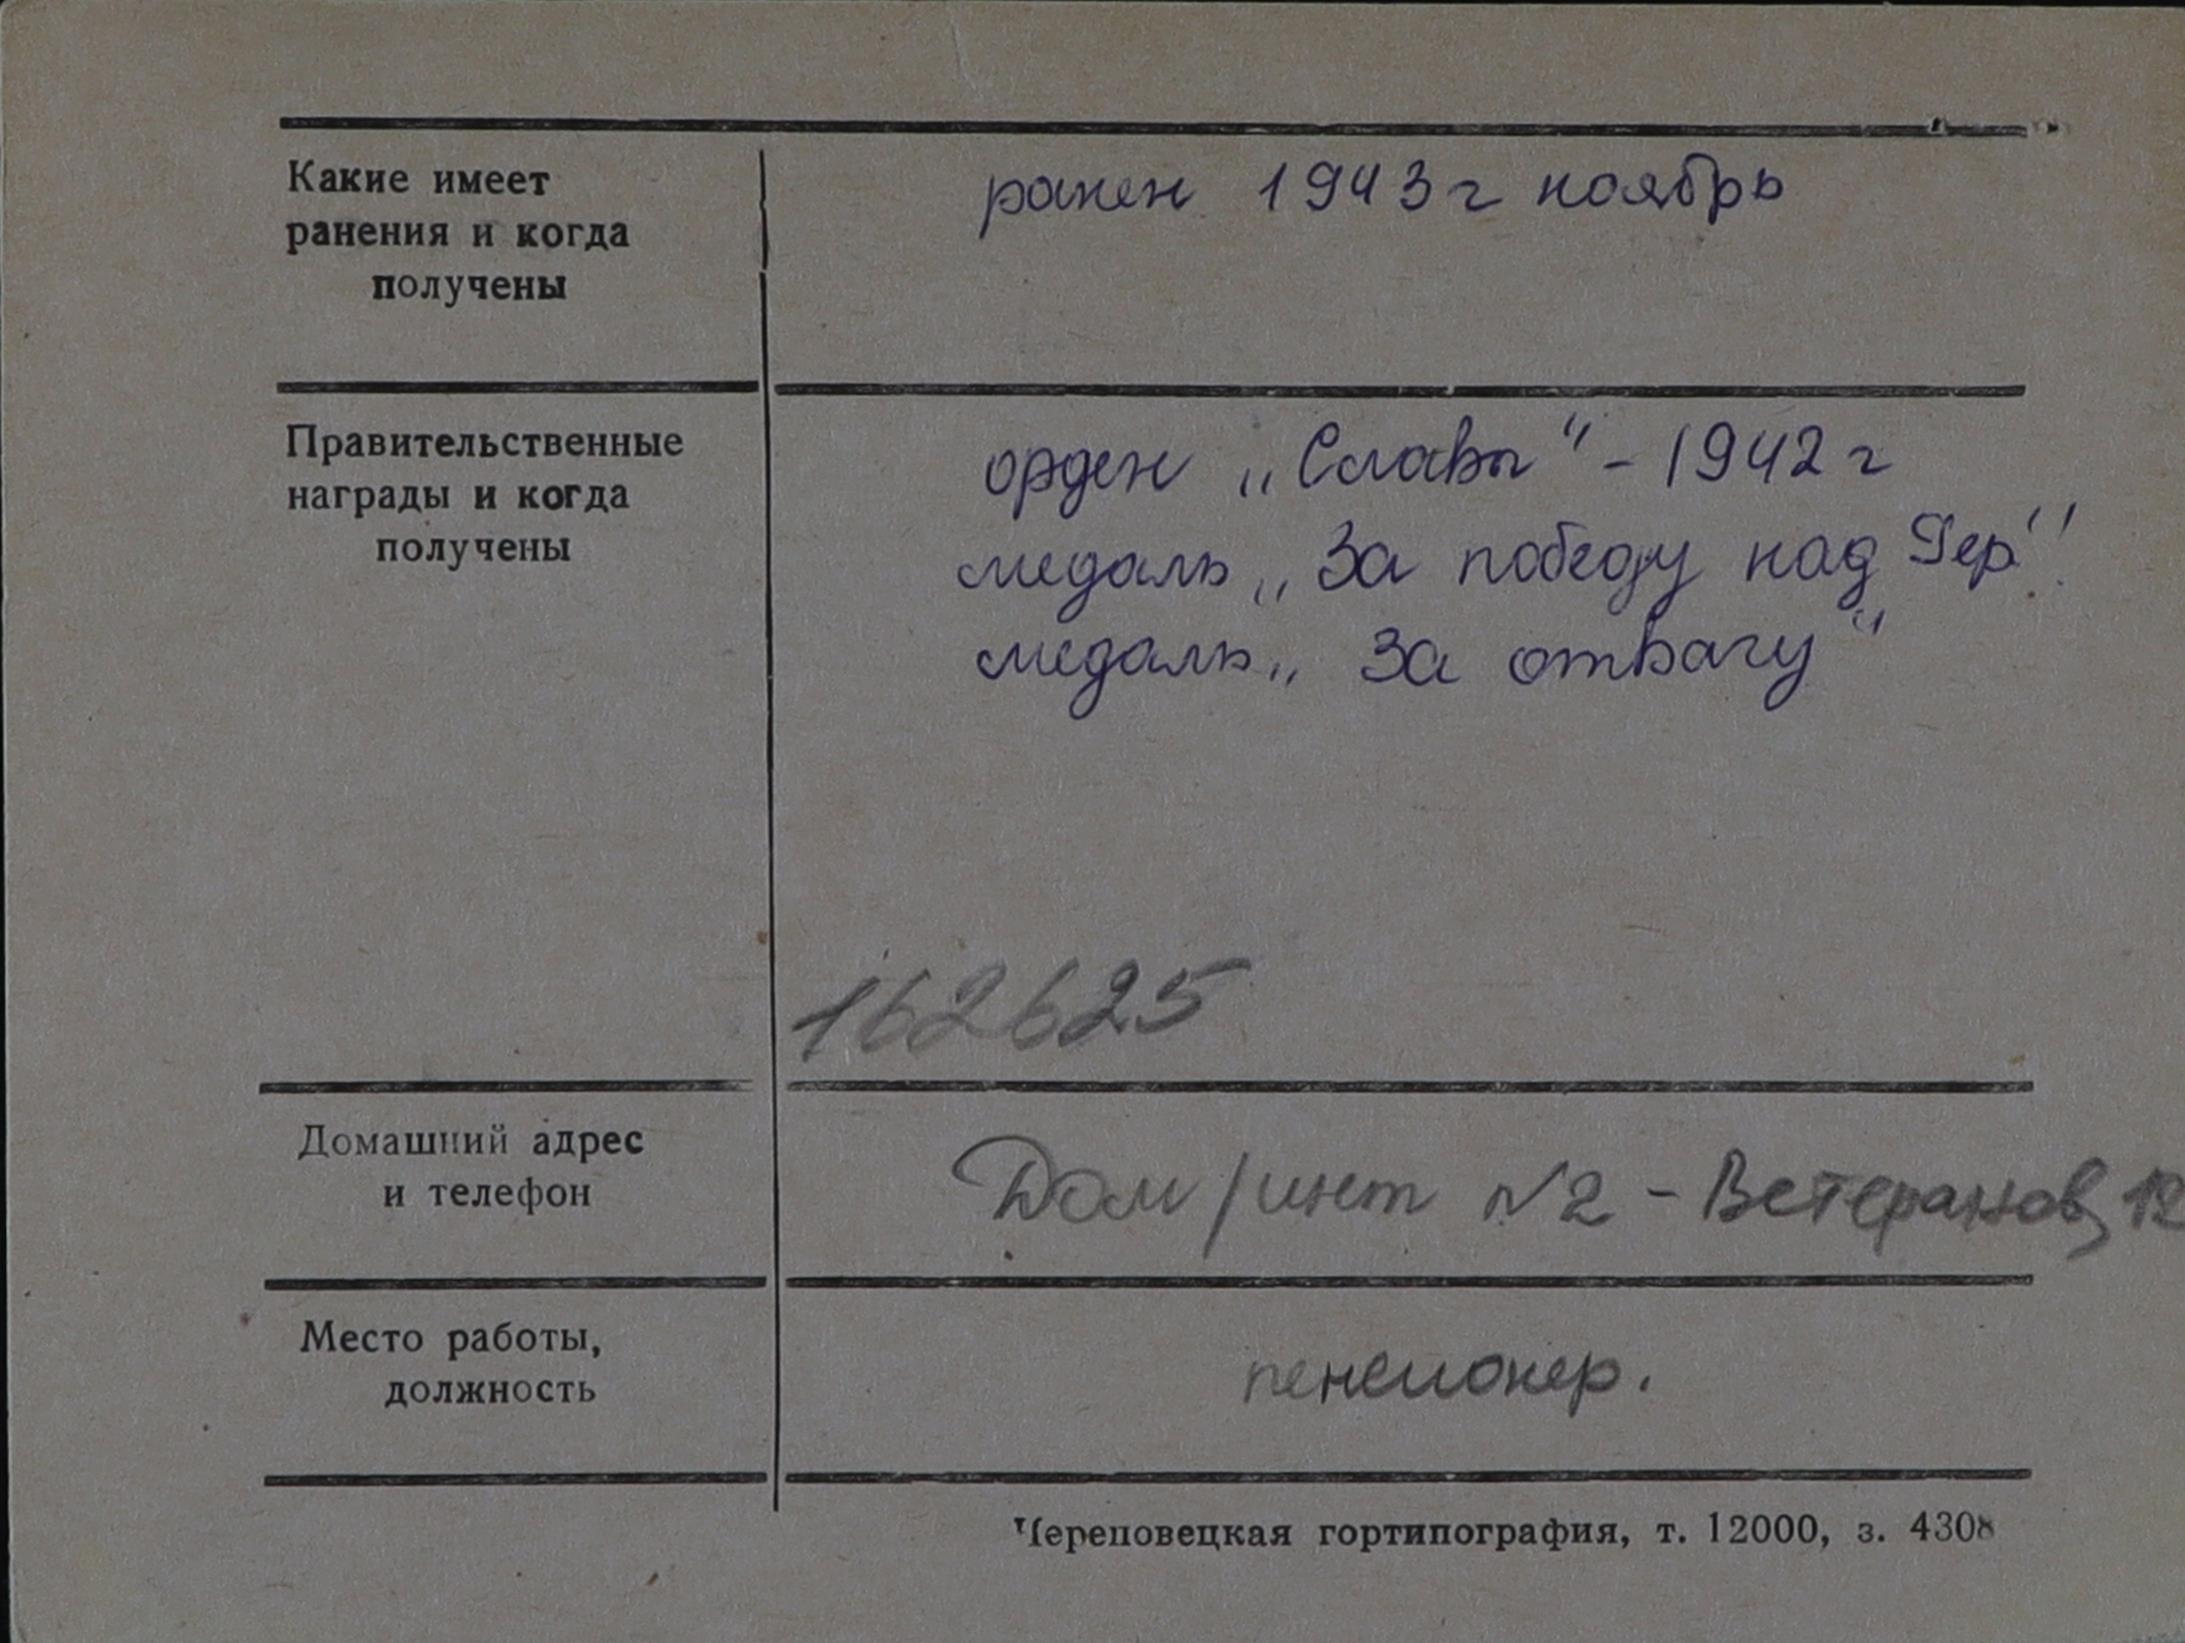 Какие имеет
ранения и когда
получены
ранен 1943 г ноябрь
Правительственные
награды и когда
получены
орден „Славы“ - 1942 г
медаль „За победу над Гер“.
медаль „За отвагу“
162625
Домашний адрес
и телефон
Дом/инт N2 - Ветеранов, 12
Место работы,
должность
пенсионер.
Череповецкая гортипография, т. 12000, з. 4308